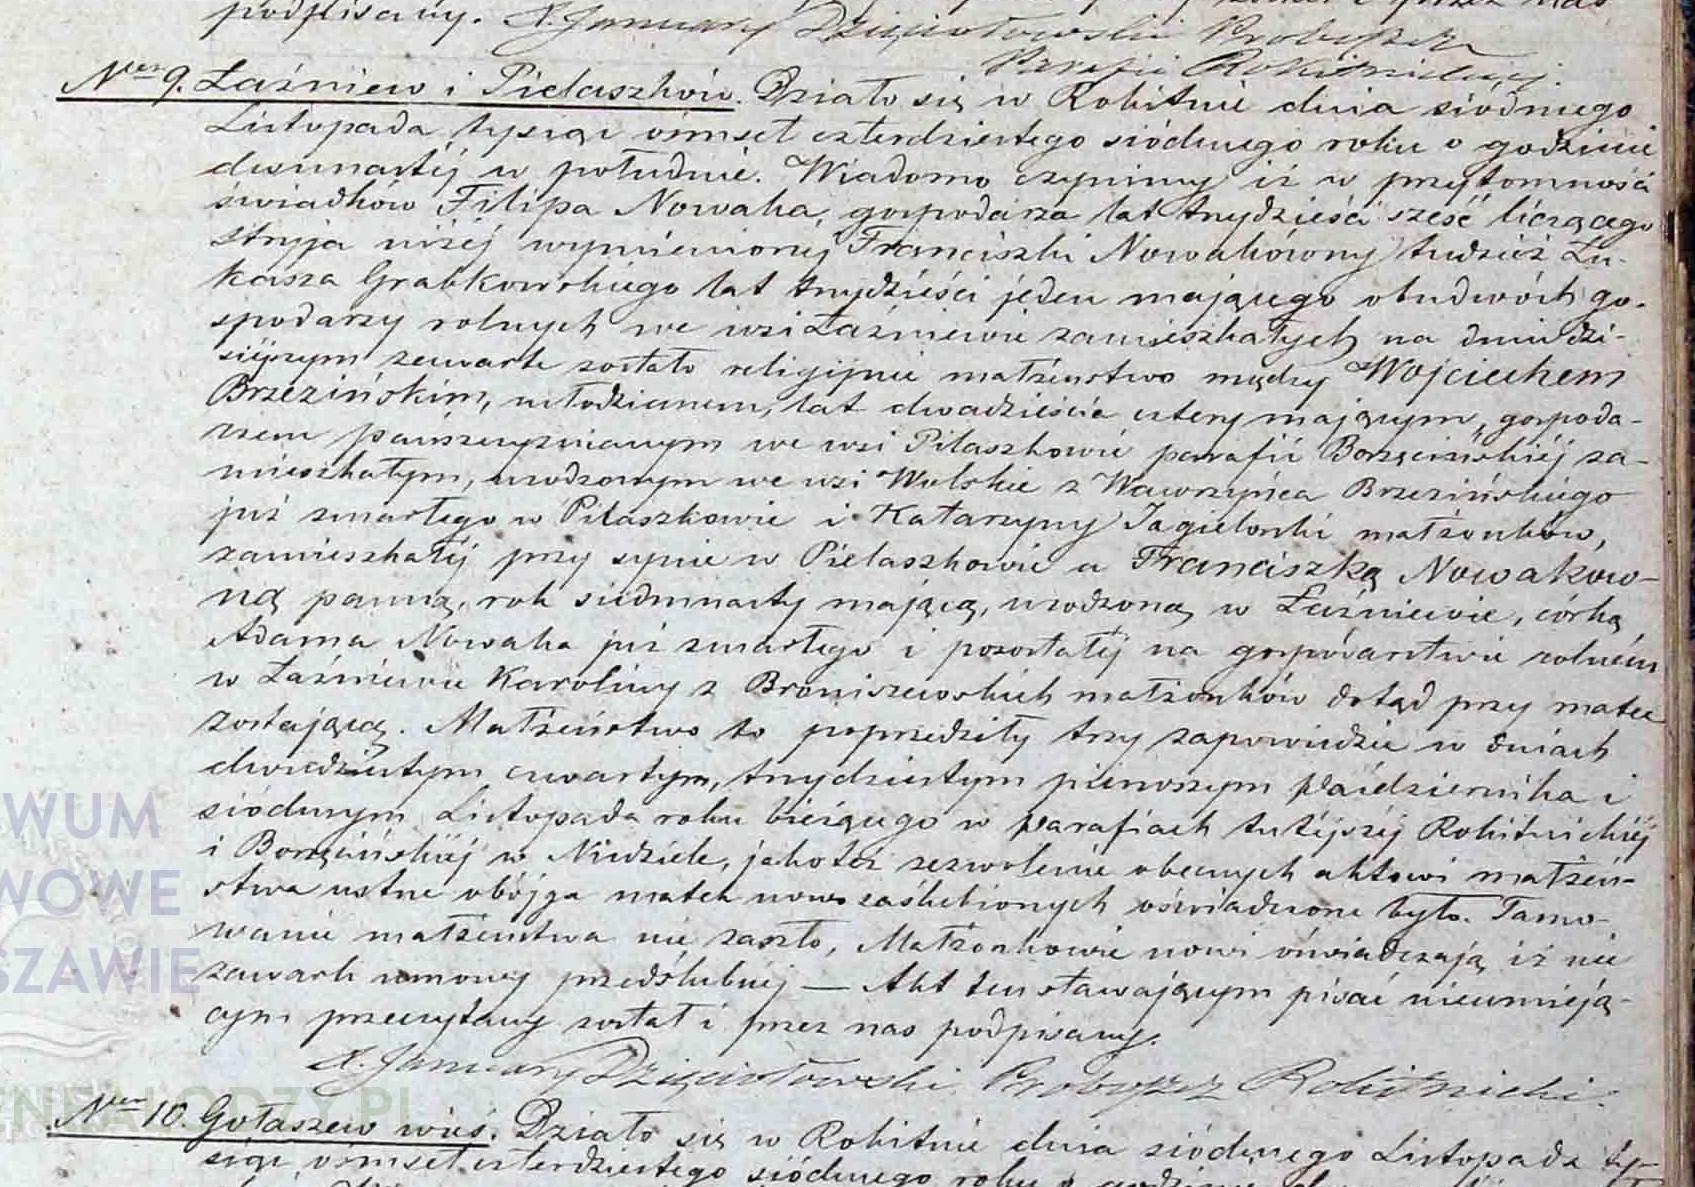 podpisany. X. January Dzięciołowski Proboszcz
Parafii Rokitnickiej.
Nro 9. Łaźniew i Pielaszków. Działo się w Rokitnie dnia siódmego
Listopada tysiąc ośmset czterdziestego siódmego roku o godzinie
dwunastéj w południe. Wiadomo czynimy iż w przytomności
świadków Filipa Nowaka, gospodarza lat trzydzieści sześć liczącego
stryja niżéj wymienionéj Franciszki Nowakówny tudzież Łu-
kasza Grabkowskiego lat trzydzieści jeden mającego obudwóch go-
spodarzy rolnych we wsi Łaźniewie zamieszkałych na dniu dzi-
siejszym zawarte zostało religijnie małżeństwo między Wojciechem
Brzezińskim, młodzianem, lat dwadzieścia cztery mającym, gospoda-
rzem pańszczyznianym we wsi Pilaszkowie parafii Borzęcińskiéj za-
mieszkałym, urodzonym we wsi Wolskie z Wawrzyńca Brzezińskiego
już zmarłego w Pilaszkowie i Katarzyny Jagielonki małżonków,
zamieszkałéj przy synie w Pielaszkowie a Franciszką Nowakow-
ną panną, rok siedmnasty mającą, urodzoną w Łaźniewie, córką
Adama Nowaka już zmarłego i pozostałéj na gospodarstwie rolném
w Łaźniewie Karoliny z Broniszewskich małżonków dotąd przy matce
zostającą. Małżeństwo to poprzedziły trzy zapowiedzie w dniach
dwudziestym czwartym, trzydziestym pierwszym Października i
siódmym Listopada roku bieżącego w Parafiach tutéjszéj Rokitnickiéj
i Borzęcińskiéj w Niedziele, jakotéż zezwolenie obecnych aktowi małżeń-
stwa ustne obójga matek nowo zaślubionych oświadczone było. Tamo-
wanie małżeństwa nie zaszło, Małżonkowie nowi oświadczają iż nie
zawarli umowy przedślubnéj — Akt ten stawającym pisać nieumieją-
cym przeczytany został i przez nas podpisany.
X. January Dzięciołowski Proboszcz Rokitnicki.
Nro 10. Gołaszew wieś. Działo się w Rokitnie dnia siódmego Listopada ty-
siąc ośmset czterdziestego siódmego roku o godzinie
WUM
WOWE
SZAWIE
ENEALODZY.PL